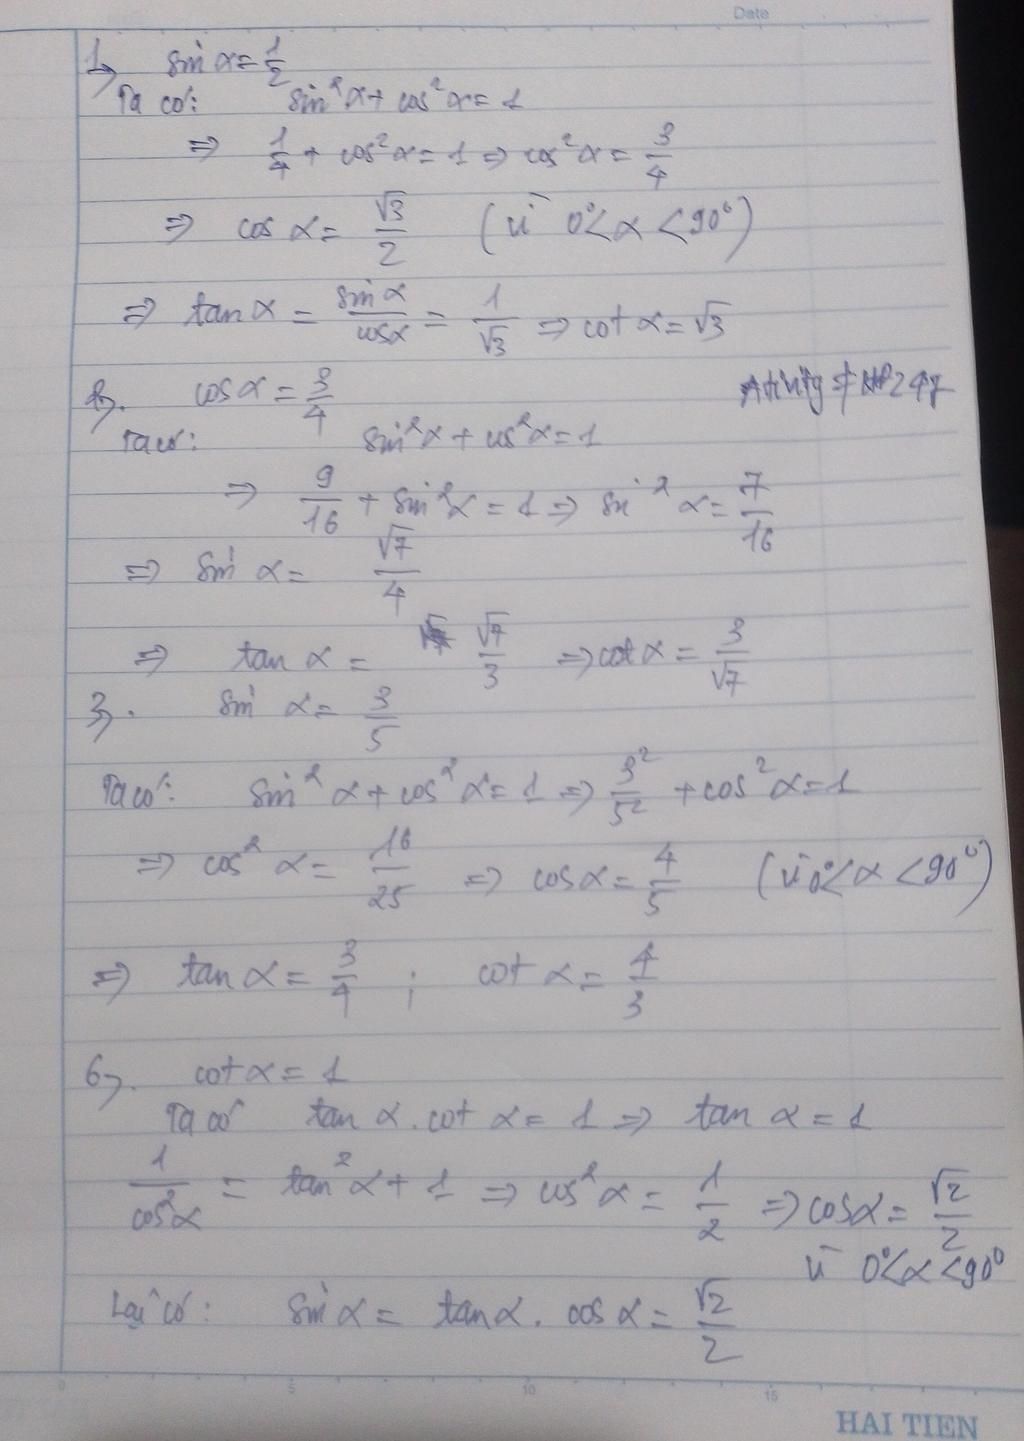 Date
1, sin α = 1/2
Ta có: sin²α + cos²α = 1
⇒ 1/4 + cos²α = 1 ⇒ cos²α = 3/4
⇒ cos α = √3/2 (vì 0° < α < 90°)
⇒ tan α = sin α/cos α = 1/√3 ⇒ cot α = √3
2, cos α = 3/4
Ta có: sin²α + cos²α = 1
⇒ 9/16 + sin²α = 1 ⇒ sin²α = 7/16
⇒ sin α = √7/4
⇒ tan α = √7/3 ⇒ cot α = 3/√7
3, sin α = 3/5
Ta có: sin²α + cos²α = 1 ⇒ 3²/5² + cos²α = 1
⇒ cos²α = 16/25 ⇒ cos α = 4/5 (vì 0° < α < 90°)
⇒ tan α = 3/4 ; cot α = 4/3
6, cot α = 1
Ta có tan α . cot α = 1 ⇒ tan α = 1
1/cos²α = tan²α + 1 ⇒ cos²α = 1/2 ⇒ cos α = √2/2
vì 0° < α < 90°
Lại có: sin α = tan α . cos α = √2/2
0 5 10 15
HAI TIEN